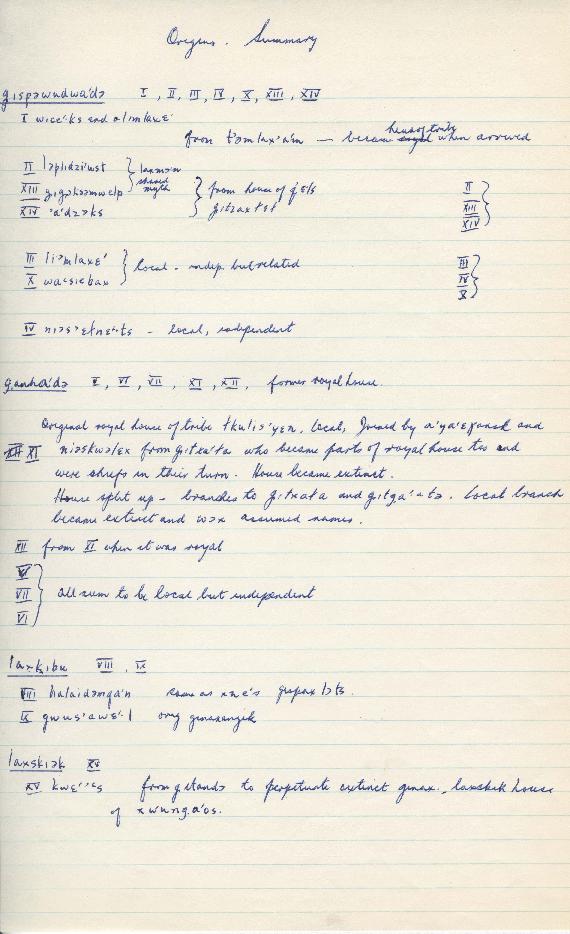 Origins. Summary
gıspəwudwa'də I, II, III, IV, X, XIII, XIV
I wice'ks and
from t'əmlax'a'm — became head of tribe when arrived
II ləplidzi'wst
XIII gıgəkəəmwelp shared myth from house of
XIV 'a'dzəks gıtxaxtet
II
XIII
XIV
III li'əmlaxɛ' local - indep. but related
X wa'sıebax
III
IV
X
IV nıəs'ɛłnɛ'ts - local, independent
ganha'də V, VI, VII, XI, XII, former royal house.
Original royal house of tribe łkulıs'yɛn, local, Joined by and
XI nıəskwəlɛx from gıtxa'ta who became parts of royal house too and
were chiefs in their turn. House became extinct.
House split up - branches to gıtxata and gıtga'atə. Local branch
became extinct and wəx assumed names.
XII from XI when it was royal
V
VII all seem to be local but independent
VI
laxkıbu VIII, IX
VIII halaidəmga'n same as xwe's gıspaxləts.
IX gwus'awɛ'l orig ginaxangik
laxskiək XV
XV kwɛ'ɛs from gitandə to perpetuate extinct ginax., laxskik house
of xwunga'os.